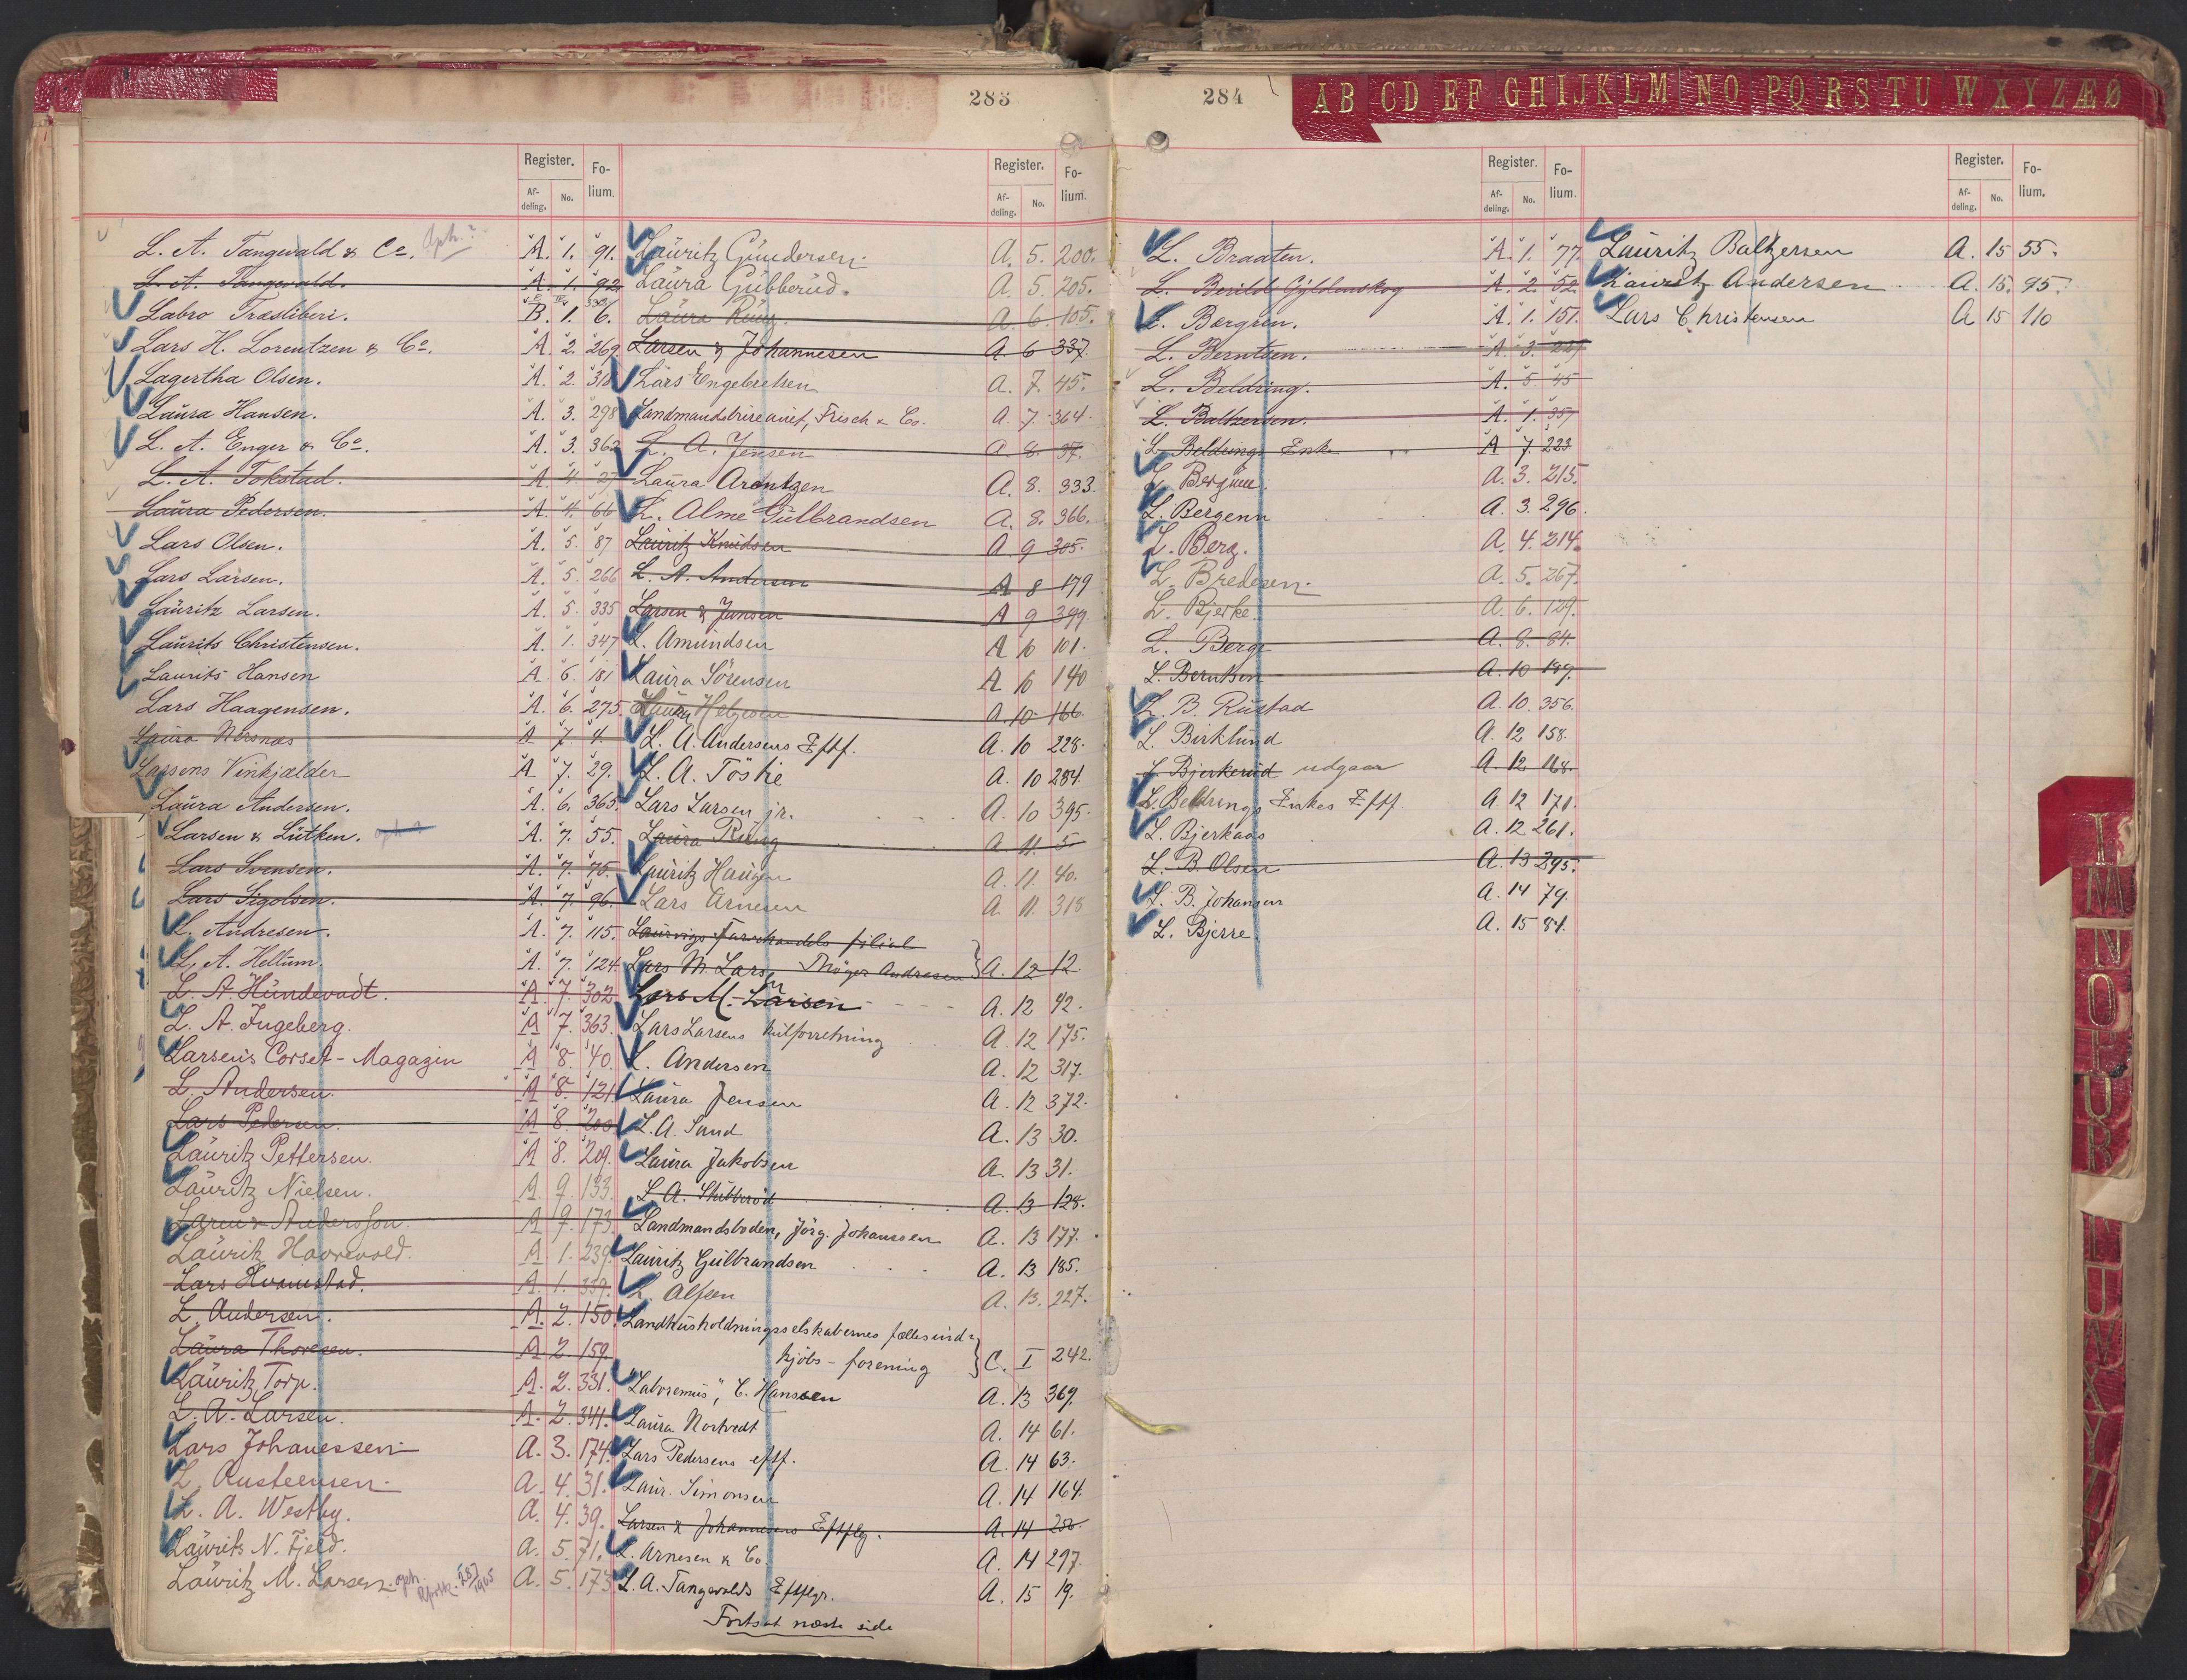 283
Register. Fo-
Af-deling. No. lium.
Register. Fo-
Af-deling. No. lium.
L. A. Tangevald & Co. Oph.? A. 1. 91.
L. A. Tangevald. A. 1. 92.
Labro Træsliberi. B. 1. 6.
Lars H. Lorentzen & Co. A. 2. 269.
Lagertha Olsen. A. 2. 318
Laura Hansen. A. 3. 298
L. A. Enger & Co. A. 3. 362
L. A. Tokstad. A. 4. 27
Laura Pedersen. A. 4. 66
Lars Olsen. A. 5. 87
Lars Larsen. A. 5. 266
Lauritz Larsen. A. 5. 335
Laurits Christensen. A. 1. 347
Laurits Hansen A. 6. 181
Lars Haagensen. A. 6. 275.
Laura Næsnæs A 7. 4.
Larsens Vinkjælder A 7. 29.
Laura Andersen. A. 6. 365.
Larsen & Lütken. A. 7. 55.
Lars Svensen. A. 7. 75.
Lars Sigolsen. A. 7. 96.
L. Andresen. A. 7. 115.
L. A. Hellum. A. 7. 124
L. A. Hundevadt. A. 7. 302
L. A. Ingeberg. A 7. 363.
Larsens Corset-Magazin A 8. 40.
L. Andersen. A 8. 121
Lars Pedersen. A 8. 200
Lauritz Pettersen. A 8. 209.
Lauritz Nielsen. A. 9. 133.
Laren & Andersson. A 9. 173
Lauritz Haavevold. A. 1. 239.
Lars Hvamstad. A. 1. 339.
L. Andersen. A. 2. 150
Laura Thoresen. A 2. 159.
Lauritz Torp. A. 2. 331.
L. A. Larsen. A. 2. 341.
Lars Johanessen A. 3. 174.
L. Austeensen A. 4. 31.
L. A. Westby. A. 4. 39.
Laurits N. Fjeld. A. 5. 71.
Lauritz M. Larsen. oph. 28/7 1905 A. 5. 173
Lauritz Gundersen. A. 5. 200.
Laura Gubberud. A. 5. 205.
Laura Ruug. A. 6. 105.
Larsen & Johannesen A. 6 337.
Lars Engebretsen A. 7. 45.
Landmandsbureauet, Frisch & Co. A. 7. 364.
L. A. Jensen A. 8. 37.
Laura Arentzen A. 8. 333.
L. Alme Gulbrandsen A. 8. 366.
Lauritz Knudsen A. 9 305.
L. A. Andersen A 8 179
Larsen & Jansen A 9 399
L. Amundsen A 10 101.
Laura Sörensen A 10 140
A. 10 166.
L. A. Andersens Eftf. A. 10 228.
L. A. Töstie A. 10 284.
Lars Larsen jr. A. 10 395.
Laura Ruug A. 11. 5
Lauritz Haugen A. 11. 40.
Lars Arnesen A. 11. 318
Laurvigs Farvehandels filial
Lars M. Lars, Thöger Andresen } A. 12 12.
Lars M. Larsen A. 12 42.
Lars Larsens kulforretning A. 12 175.
L. Andersen A. 12 317.
Laura Jensen A. 12 372.
L. A. Sand A. 13 30.
Laura Jakobsen A. 13 31.
L. A. Stubberöd A. 13 128.
Landmandsboden, Jörg. Johanssen A. 13 177.
Lauritz Gulbrandsen A. 13 185.
L. Alfsen A. 13. 227.
Landhusholdningsselskabernes fællesind-
kjöbs-forening } C. I 242.
"Laboremus", C. Hanssen A. 13 369.
Laura Nortvedt A. 14 61.
Lars Pedersens eftf. A. 14 63.
Laur. Simonsen A. 14 164.
Larsen & Johannesens Eftflg. A. 14 256.
L. Arnesen & Co. A. 14 297.
L. A. Tangevalds Eftflgr. A. 15 19.
Fortsat næste side
284
AB CD EF GH IJ KL M NO PQ RS TU W XYZ ÆØ
Register. Fo-
Af-deling. No. lium.
Register. Fo-
Af-deling. No. lium.
L. Braaten. A. 1. 77.
L. Berild Gyldenskog A. 2. 52.
L. Børgum. A. 1. 151.
L. Berntsen. A. 3. 227
L. Beldring. A. 5 45
L. Baltzersen. A. 1. 357
L. Beldrings Enke A 7. 223
L. Bergum A. 3. 215.
L. Bergenn A. 3. 296.
L. Berg. A. 4. 214.
L. Bredesen. A. 5. 267.
L. Bjerke. A. 6. 129.
L. Berge A. 8. 84.
L. Berntsen A. 10 189.
L. B. Rustad A. 10. 356.
L. Birklund A. 12 158.
L. Bjerkerud udgaar A. 12 168.
L. Beldrings Enkes Eftf. A. 12 171.
L. Bjerkaas A. 12 261.
L. B. Olsen A. 13 295.
L. B. Johansen A. 14 79.
L. Bjerre. A. 15 84.
Lauritz Baltzersen A. 15 55.
Lauritz Andersen A. 15. 95.
Lars Christensen A 15 110